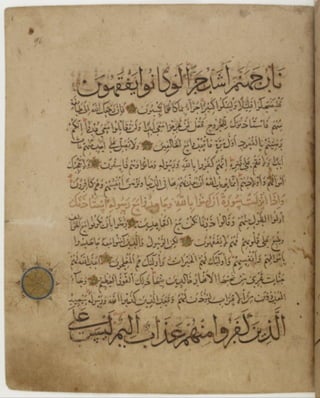 نار جهنم أشد حرا لو كانوا يفقهون
فليضحكوا قليلا وليبكوا كثيرا جزاء بما كانوا يكسبون فإن رجعك الله إلى طائفة
منهم فاستأذنوك للخروج فقل لن تخرجوا معي أبدا ولن تقاتلوا معي عدوا إنكم
رضيتم بالقعود أول مرة فاقعدوا مع الخالفين ولا تصل على أحد منهم مات
أبدا ولا تقم على قبره إنهم كفروا بالله ورسوله وماتوا وهم فاسقون ولا تعجبك
أموالهم وأولادهم إنما يريد الله أن يعذبهم بها في الدنيا وتزهق أنفسهم وهم كافرون
وإذا أنزلت سورة أن آمنوا بالله وجاهدوا مع رسوله استأذنك
أولوا الطول منهم وقالوا ذرنا نكن مع القاعدين رضوا بأن يكونوا مع الخوالف
وطبع على قلوبهم فهم لا يفقهون لكن الرسول والذين آمنوا معه جاهدوا
بأموالهم وأنفسهم وأولئك لهم الخيرات وأولئك هم المفلحون أعد الله لهم
جنات تجري من تحتها الأنهار خالدين فيها ذلك الفوز العظيم وجاء
المعذرون من الأعراب ليؤذن لهم وقعد الذين كذبوا الله ورسوله سيصيب
الذين كفروا منهم عذاب أليم ليس على